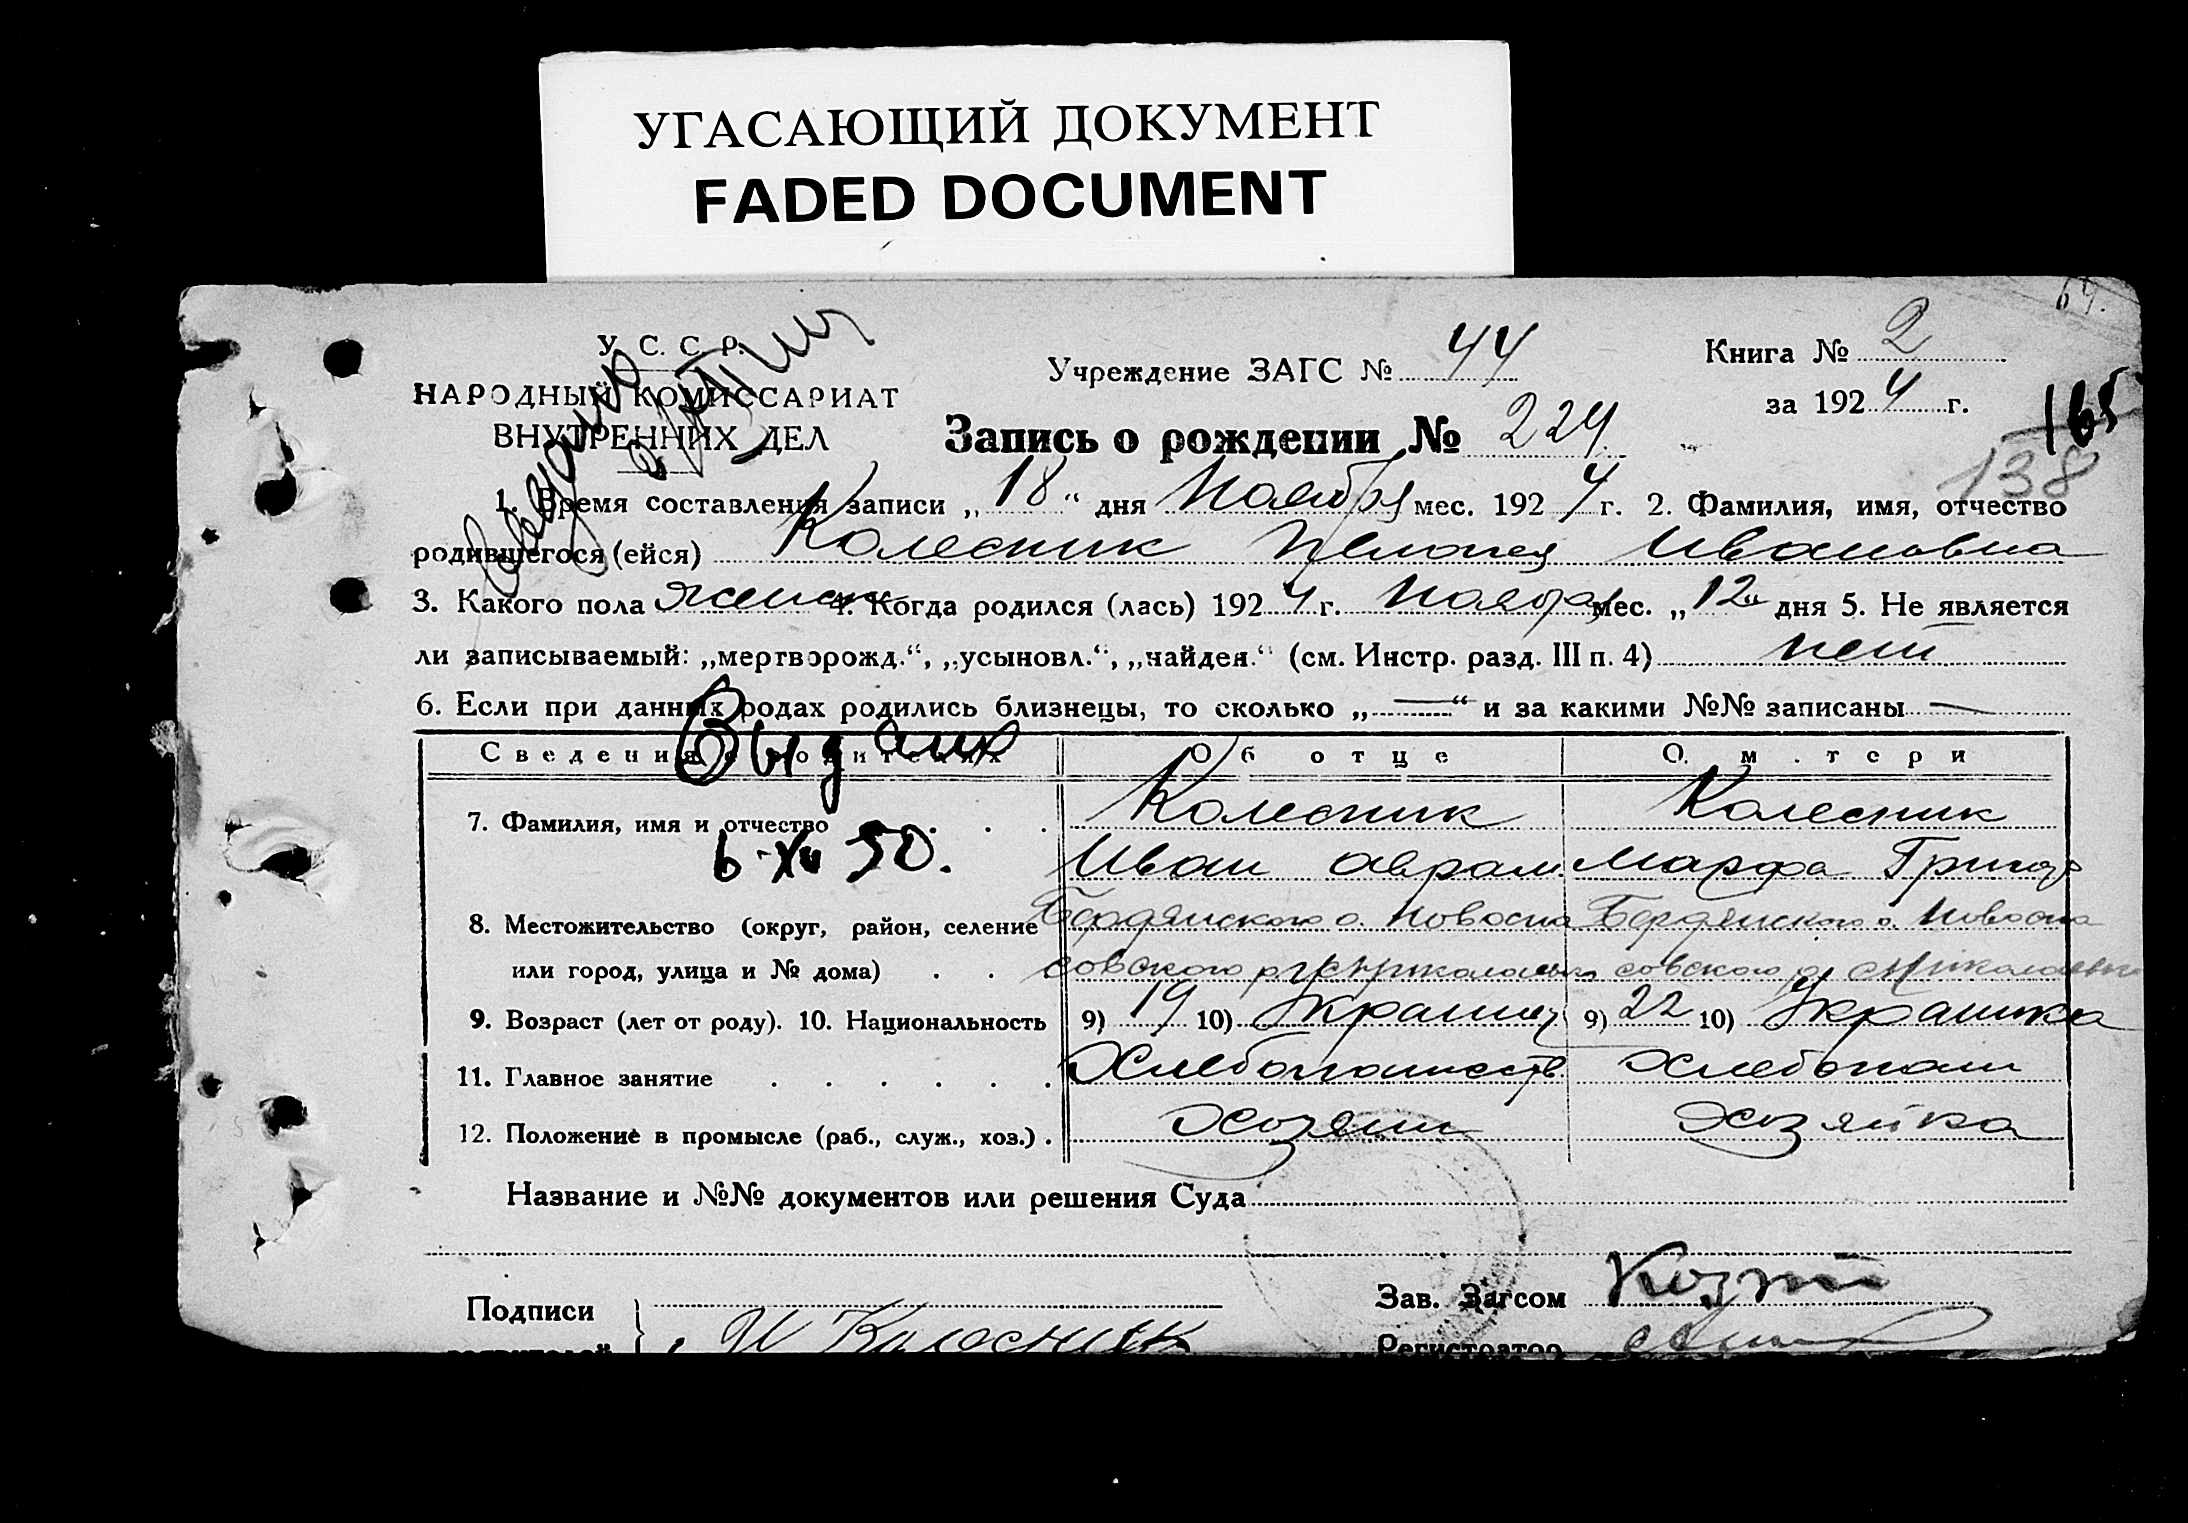 УГАСАЮЩИЙ ДОКУМЕНТ
FADED DOCUMENT
64.
У. С. С. Р.
НАРОДНЫЙ КОМИССАРИАТ
ВНУТРЕННИХ ДЕЛ
Учреждение ЗАГС № 44
Книга № 2
за 1924 г.
165
138
Запись о рождении № 224
1. Время составления записи „18“ дня Ноября мес. 1924 г. 2. Фамилия, имя, отчество
родившегося (ейся) Колесник Пелагея Ивановна
3. Какого пола женск 4. Когда родился (лась) 1924 г. Ноября мес. „12“ дня 5. Не является
ли записываемый: „мертворожд.“, „усыновл.“, „найден.“ (см. Инстр. разд. III п. 4) нет
6. Если при данных родах родились близнецы, то сколько „—“ и за какими №№ записаны —
Сведения о родителях Об отце О матери
Выдано
6-XII 50.
7. Фамилия, имя и отчество . . . Колесник Колесник
Иван Аврам. Марфа Григор
8. Местожительство (округ, район, селение Бердянского о. Новоспа Бердянского о. Новоспа
или город, улица и № дома) . . совского р совского р
9. Возраст (лет от роду). 10. Национальность 9) 19 10) Украинец 9) 22 10) Украинка
11. Главное занятие . . . . . . Хлебопашеств. Хлебопаш
12. Положение в промысле (раб., служ., хоз.) . Хозяин Хозяйка
Название и №№ документов или решения Суда
Подписи
заявителей
И Колесник
Зав. Загсом
Регистратор